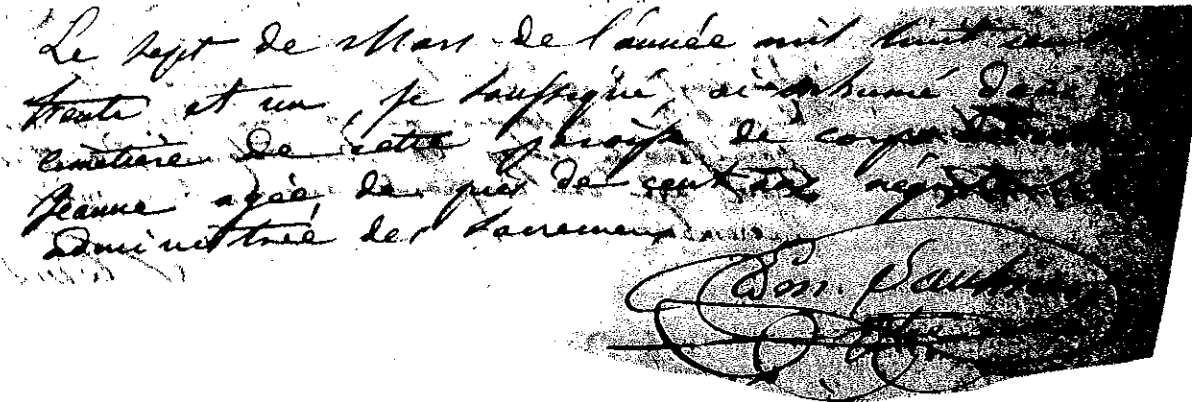 Le sept de Mars de l'année mil huit cent
trente et un, je soussigné, ai inhumé dans
cimetière de cette paroisse le corps de
Jeanne agée de près de cent ans négresse
administrée des sacremens
Edm.